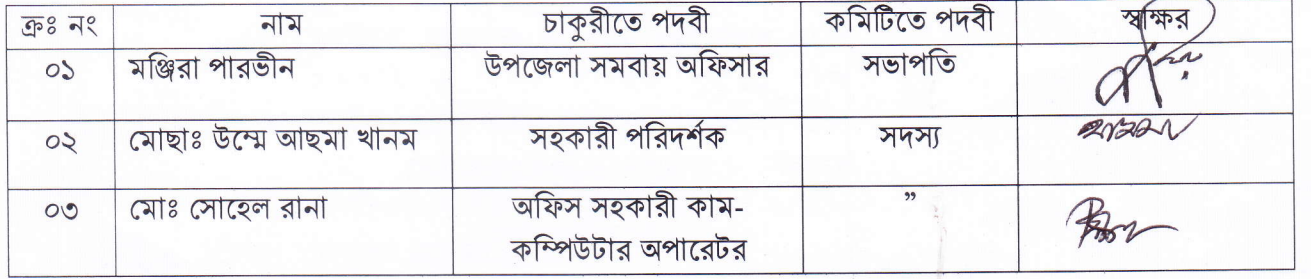 ক্রঃ নং নাম চাকুরীতে পদবী কমিটিতে পদবী স্বাক্ষর
০১ মঞ্জিরা পারভীন উপজেলা সমবায় অফিসার সভাপতি
০২ মোছাঃ উম্মে আছমা খানম সহকারী পরিদর্শক সদস্য
০৩ মোঃ সোহেল রানা অফিস সহকারী কাম- ”
কম্পিউটার অপারেটর